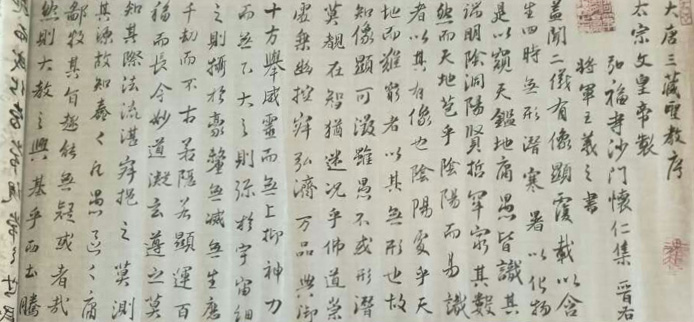 大唐三藏聖教序
太宗文皇帝製
弘福寺沙門懷仁集 晉右
將軍王羲之書
蓋聞二儀有像顯覆載以含
生四時無形潛寒暑以化物
是以窺天鑑地庸愚皆識其
端明陰洞陽賢哲罕窮其數
然而天地苞乎陰陽而易識
者以其有像也陰陽處乎天
地而難窮者以其無形也故
知像顯可徵雖愚不惑形潛
莫覩在智猶迷況乎佛道崇
虛乘幽控寂弘濟萬品典御
十方舉威靈而無上抑神力
而無下大之則彌於宇宙細
之則攝於豪釐無滅無生歷
千劫而不古若隱若顯運百
福而長今妙道凝玄遵之莫
知其際法流湛寂挹之莫測
其源故知蠢々凡愚區々庸
鄙投其旨趣能無疑或者哉
然則大教之興基乎西土騰